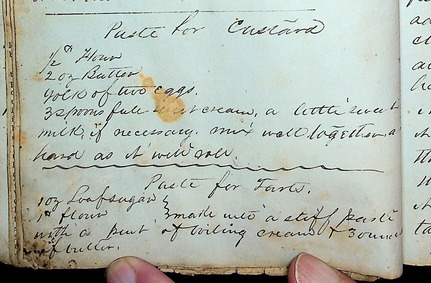 Paste for Custard
1/2 lb Flour
2 oz Butter
Yolk of two eggs.
3 spoons full cream, a little sweet
milk if necessary. mix well together, a
hard as it will roll.
Paste for Tarts.
1 oz Loaf sugar
1 lb flour } make into a stiff paste
with a pint of boiling cream & 3 ounces
of butter.